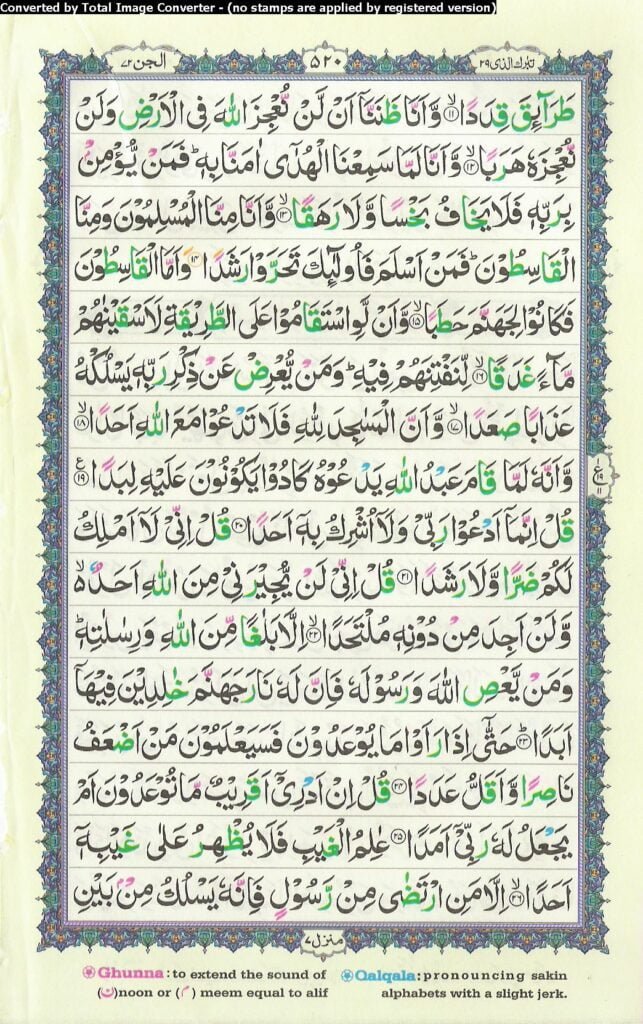 Converted by Total Image Converter - (no stamps are applied by registered version)
تبٰرك الذی ٢٩ ٥٢٠ الجن ٧٢
طَرَآئِقَ قِدَدًا ۙ﴿۱۱﴾ وَّ اَنَّا ظَنَنَّاۤ اَنْ لَّنْ نُّعْجِزَ اللّٰهَ فِی الْاَرْضِ وَ لَنْ
نُّعْجِزَهٗ هَرَبًا ۙ﴿۱۲﴾ وَّ اَنَّا لَمَّا سَمِعْنَا الْهُدٰۤی اٰمَنَّا بِهٖ ؕ فَمَنْ یُّؤْمِنْۢ
بِرَبِّهٖ فَلَا یَخَافُ بَخْسًا وَّ لَا رَهَقًا ۙ﴿۱۳﴾ وَّ اَنَّا مِنَّا الْمُسْلِمُوْنَ وَ مِنَّا
الْقٰسِطُوْنَ ؕ فَمَنْ اَسْلَمَ فَاُولٰٓئِكَ تَحَرَّوْا رَشَدًا ﴿۱۴﴾ وَ اَمَّا الْقٰسِطُوْنَ
فَكَانُوْا لِجَهَنَّمَ حَطَبًا ۙ﴿۱۵﴾ وَّ اَنْ لَّوِ اسْتَقَامُوْا عَلَی الطَّرِیْقَةِ لَاَسْقَیْنٰهُمْ
مَّآءً غَدَقًا ۙ﴿۱۶﴾ لِّنَفْتِنَهُمْ فِیْهِ ؕ وَ مَنْ یُّعْرِضْ عَنْ ذِكْرِ رَبِّهٖ یَسْلُكْهُ
عَذَابًا صَعَدًا ۙ﴿۱۷﴾ وَّ اَنَّ الْمَسٰجِدَ لِلّٰهِ فَلَا تَدْعُوْا مَعَ اللّٰهِ اَحَدًا ۙ﴿۱۸﴾
وَّ اَنَّهٗ لَمَّا قَامَ عَبْدُ اللّٰهِ یَدْعُوْهُ كَادُوْا یَكُوْنُوْنَ عَلَیْهِ لِبَدًا ﴿۱۹﴾ ع
قُلْ اِنَّمَاۤ اَدْعُوْا رَبِّیْ وَ لَاۤ اُشْرِكُ بِهٖۤ اَحَدًا ﴿۲۰﴾ قُلْ اِنِّیْ لَاۤ اَمْلِكُ
لَكُمْ ضَرًّا وَّ لَا رَشَدًا ﴿۲۱﴾ قُلْ اِنِّیْ لَنْ یُّجِیْرَنِیْ مِنَ اللّٰهِ اَحَدٌ ۙ۬
وَّ لَنْ اَجِدَ مِنْ دُوْنِهٖ مُلْتَحَدًا ۙ﴿۲۲﴾ اِلَّا بَلٰغًا مِّنَ اللّٰهِ وَ رِسٰلٰتِهٖ ؕ
وَ مَنْ یَّعْصِ اللّٰهَ وَ رَسُوْلَهٗ فَاِنَّ لَهٗ نَارَ جَهَنَّمَ خٰلِدِیْنَ فِیْهَاۤ
اَبَدًا ؕ﴿۲۳﴾ حَتّٰۤی اِذَا رَاَوْا مَا یُوْعَدُوْنَ فَسَیَعْلَمُوْنَ مَنْ اَضْعَفُ
نَاصِرًا وَّ اَقَلُّ عَدَدًا ﴿۲۴﴾ قُلْ اِنْ اَدْرِیْۤ اَقَرِیْبٌ مَّا تُوْعَدُوْنَ اَمْ
یَجْعَلُ لَهٗ رَبِّیْۤ اَمَدًا ﴿۲۵﴾ عٰلِمُ الْغَیْبِ فَلَا یُظْهِرُ عَلٰی غَیْبِهٖۤ
اَحَدًا ۙ﴿۲۶﴾ اِلَّا مَنِ ارْتَضٰی مِنْ رَّسُوْلٍ فَاِنَّهٗ یَسْلُكُ مِنْۢ بَیْنِ
ع ١٩ ١١
منزل ٧
Ghunna: to extend the sound of (ن) noon or (م) meem equal to alif
Qalqala: pronouncing sakin alphabets with a slight jerk.